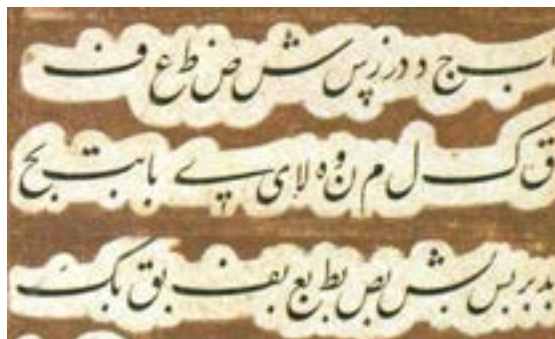 ا ب ج د در ز پس ش ص ط ع ف
ق ک ل م ن و ه لا ی ے با بت بج
بد بر بس بش بص بط بع بف بق بک